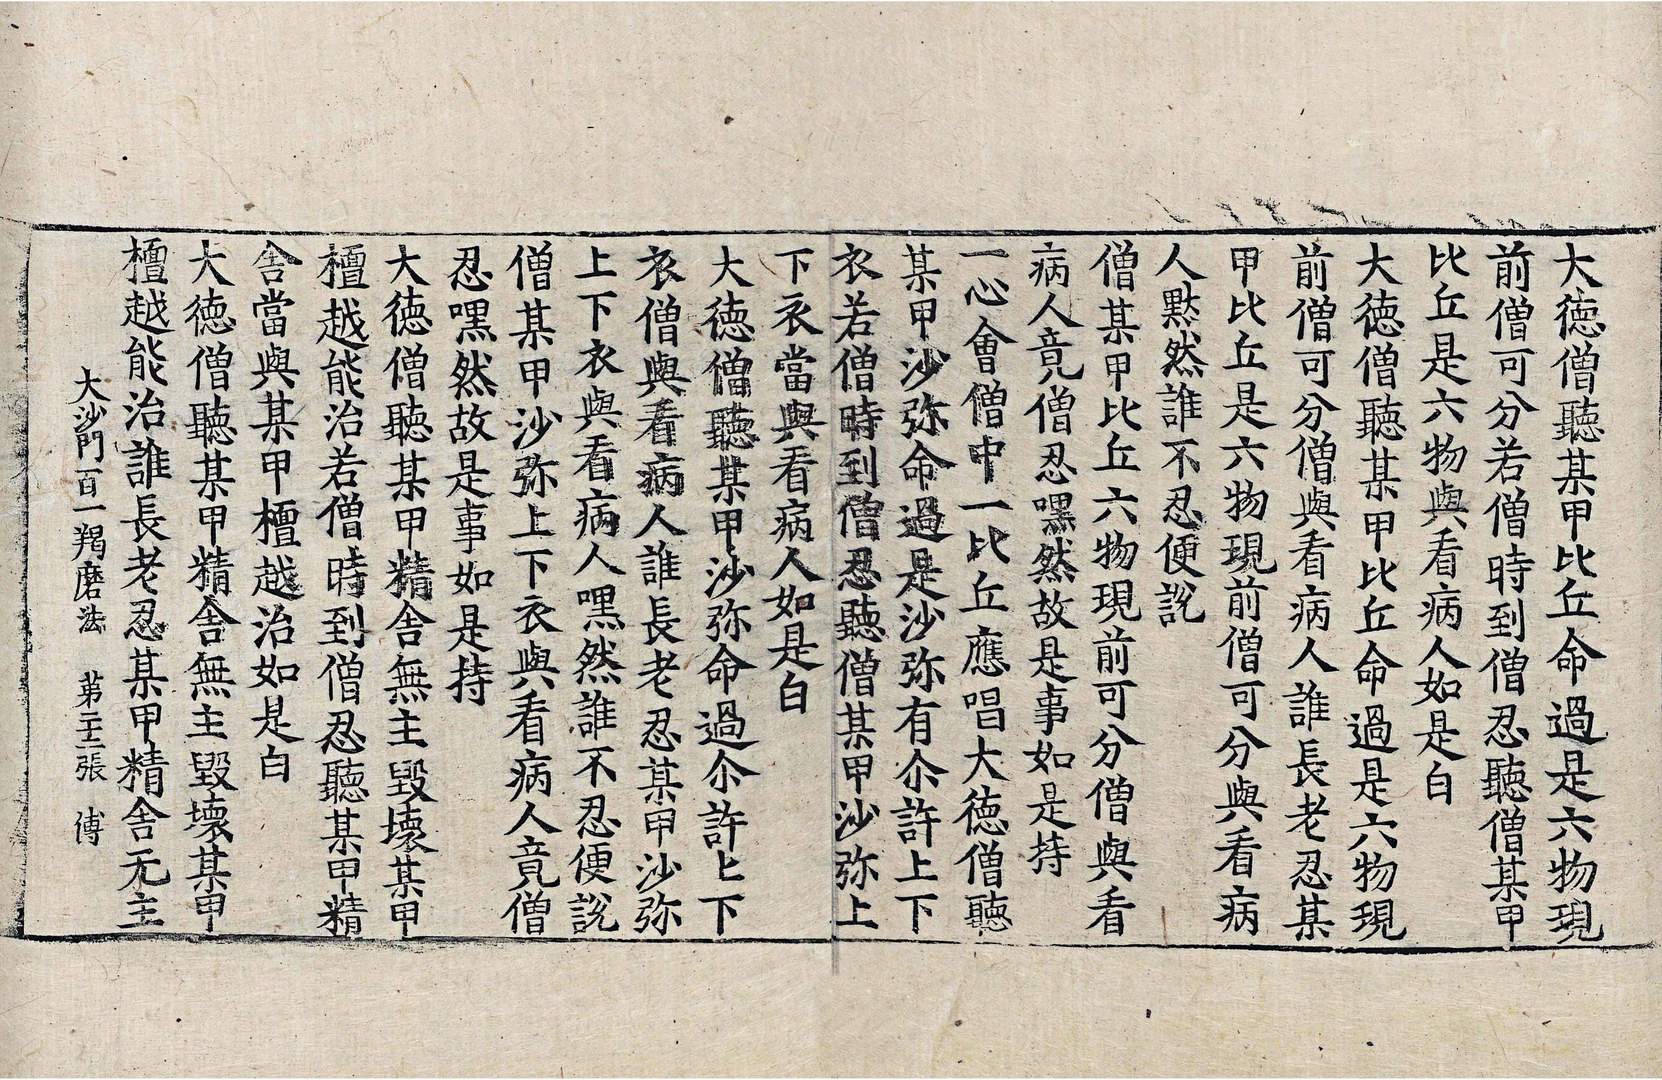 大徳僧聽某甲比丘命過是六物現
前僧可分若僧時到僧忍聽僧某甲
比丘是六物與看病人如是白
大徳僧聽某甲比丘命過是六物現
前僧可分僧與看病人誰長老忍某
甲比丘是六物現前僧可分與看病
人黙然誰不忍便説
僧某甲比丘六物現前可分僧與看
病人竟僧忍嘿然故是事如是持
一心會僧中一比丘應唱大徳僧聽
某甲沙弥命過是沙弥有尒許上下
衣若僧時到僧忍聽僧某甲沙弥上
下衣當與看病人如是白
大徳僧聽某甲沙弥命過尒許上下
衣僧與看病人誰長老忍某甲沙弥
上下衣與看病人嘿然誰不忍便説
僧某甲沙弥上下衣與看病人竟僧
忍嘿然故是事如是持
大徳僧聽某甲精舎無主毀壞某甲
檀越能治若僧時到僧忍聽某甲精
舎當與某甲檀越治如是白
大徳僧聽某甲精舎無主毀壞某甲
檀越能治誰長老忍某甲精舎无主
大沙門百一羯磨法 第十三張 傅